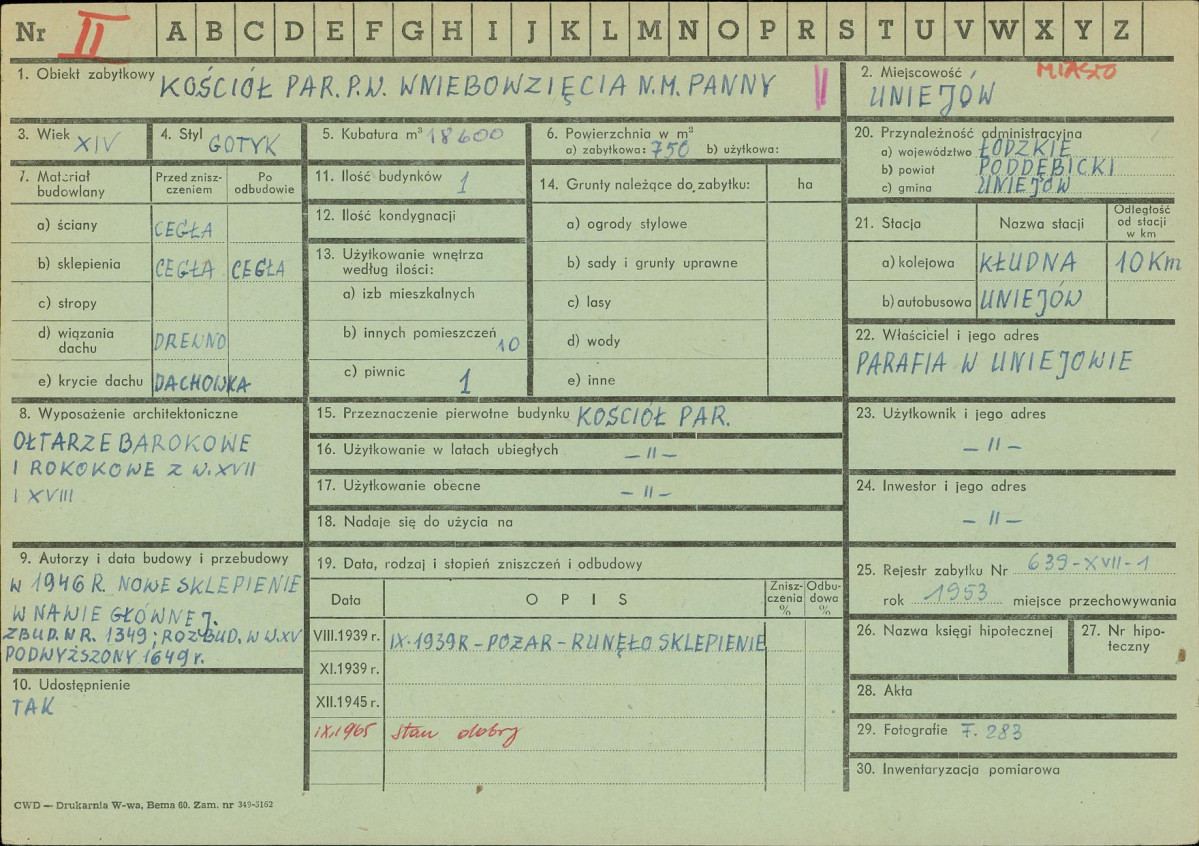 Nr II A B C D E F G H I J K L M N O P R S T U V W X Y Z
1. Obiekt zabytkowy KOŚCIÓŁ PAR. P.W. WNIEBOWZIĘCIA N.M. PANNY II
2. Miejscowość MIASTO
UNIEJÓW
3. Wiek XIV
4. Styl GOTYK
5. Kubatura m³ 18600
6. Powierzchnia w m²
a) zabytkowa: 750 b) użytkowa:
20. Przynależność administracyjna
a) województwo ŁÓDZKIE
b) powiat PODDĘBICKI
c) gmina UNIEJÓW
7. Materiał budowlany
Przed zniszczeniem
Po odbudowie
a) ściany CEGŁA
b) sklepienia CEGŁA CEGŁA
c) stropy
d) wiązania dachu DREWNO
e) krycie dachu DACHOWKA
11. Ilość budynków 1
12. Ilość kondygnacji
13. Użytkowanie wnętrza
według ilości:
a) izb mieszkalnych
b) innych pomieszczeń 10
c) piwnic 1
14. Grunty należące do zabytku: ha
a) ogrody stylowe
b) sady i grunty uprawne
c) lasy
d) wody
e) inne
21. Stacja Nazwa stacji Odległość od stacji w km
a) kolejowa KŁUDNA 10 Km
b) autobusowa UNIEJÓW
22. Właściciel i jego adres
PARAFIA W UNIEJOWIE
8. Wyposażenie architektoniczne
OŁTARZE BAROKOWE
I ROKOKOWE Z W. XVII
I XVIII
15. Przeznaczenie pierwotne budynku KOŚCIÓŁ PAR.
16. Użytkowanie w latach ubiegłych – II –
17. Użytkowanie obecne – II –
18. Nadaje się do użycia na
23. Użytkownik i jego adres
– II –
24. Inwestor i jego adres
– II –
9. Autorzy i data budowy i przebudowy
W 1946 R. NOWE SKLEPIENIE
W NAWIE GŁÓWNEJ.
ZBUD. W R. 1349; ROZBUD. W W. XV
PODWYŻSZONY 1649 r.
10. Udostępnienie
TAK
19. Data, rodzaj i stopień zniszczeń i odbudowy
Data OPIS Zniszczenia % Odbudowa %
VIII.1939 r. IX.1939 R – POZAR – RUNĘŁO SKLEPIENIE
XI.1939 r.
XII.1945 r.
IX.1965 stan dobry
25. Rejestr zabytku Nr 639-XVII-1
rok 1953 miejsce przechowywania
26. Nazwa księgi hipotecznej
27. Nr hipoteczny
28. Akta
29. Fotografie F. 283
30. Inwentaryzacja pomiarowa
CWD — Drukarnia W-wa, Bema 60. Zam. nr 349-5162